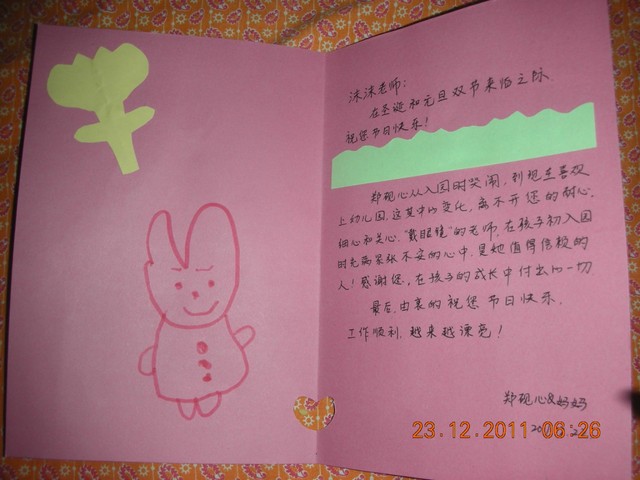 沫沫老师：
在圣诞和元旦双节来临之际，
祝您节日快乐！
郑砚心从入园时哭闹，到现在喜欢
上幼儿园，这其中的变化，离不开您的耐心、
细心和关心。"戴眼镜"的老师，在孩子初入园
时充满紧张不安的心中，是她值得信赖的
人！感谢您，在孩子的成长中付出的一切
最后，由衷的祝您节日快乐，
工作顺利，越来越漂亮！
郑砚心&妈妈
23.12.2011 06:26